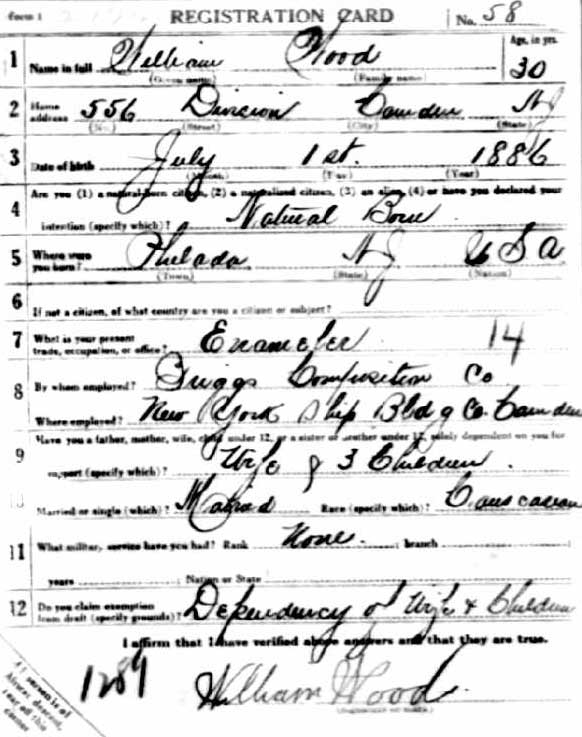 Form 1 REGISTRATION CARD No. 58
1 Name in full William Wood Age, in yrs. 30
(Given name) (Family name)
2 Home address 556 Division Camden NJ
(No.) (Street) (City) (State)
3 Date of birth July 1st. 1886
(Month) (Day) (Year)
Are you (1) a natural-born citizen, (2) a naturalized citizen, (3) an alien, (4) or have you declared your
4 intention (specify which)? Natural Born
5 Where were you born? Philada NJ USA
(Town) (State) (Nation)
6 If not a citizen, of what country are you a citizen or subject?
7 What is your present trade, occupation, or office? Enameler 14
8 By whom employed? Briggs Composition Co
Where employed? New York Ship Bldg Co. Camden
9 Have you a father, mother, wife, child under 12, or a sister or brother under 12, solely dependent on you for
support (specify which)? Wife & 3 Children.
10 Married or single (which)? Married Race (specify which)? Caucasian
11 What military service have you had? Rank None. ; branch
years ; Nation or State
12 Do you claim exemption from draft (specify grounds)? Dependency of Wife & Children
I affirm that I have verified above answers and that they are true.
1289 William Wood.
If person is of
African descent,
tear off this
corner